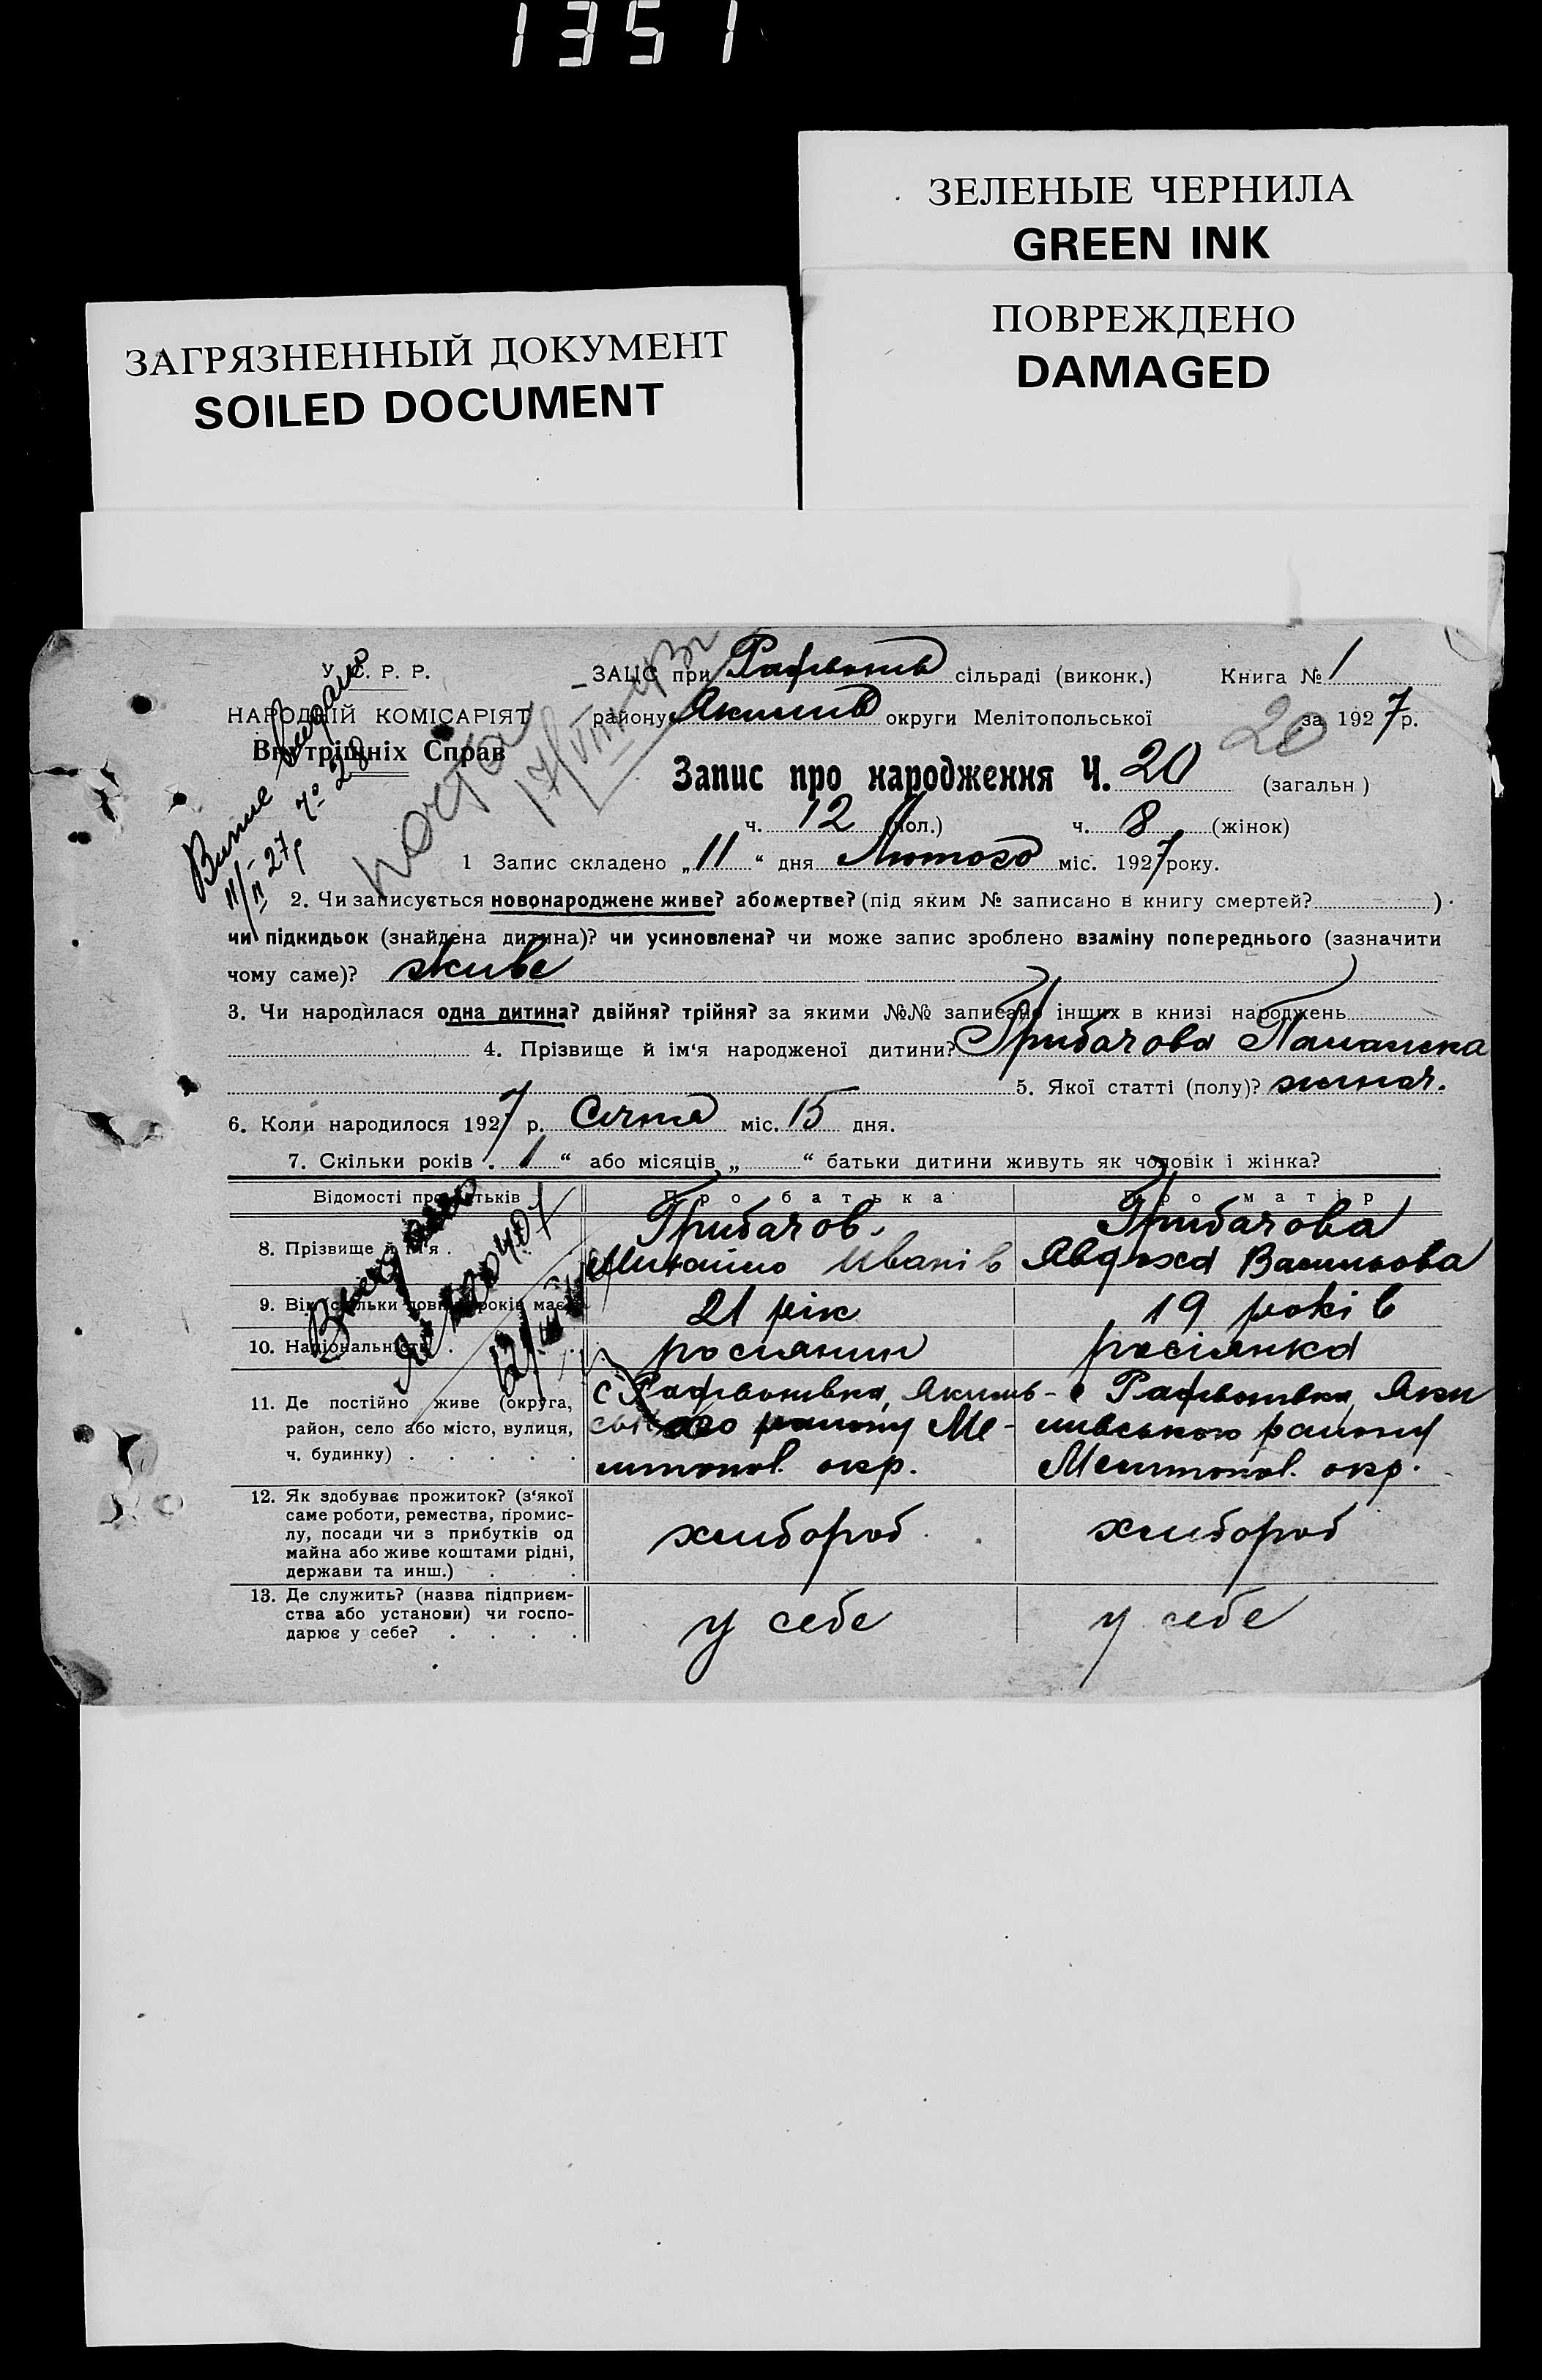 1351
ЗЕЛЕНЫЕ ЧЕРНИЛА
GREEN INK
ПОВРЕЖДЕНО
DAMAGED
ЗАГРЯЗНЕННЫЙ ДОКУМЕНТ
SOILED DOCUMENT
У. С. Р. Р.
НАРОДНІЙ КОМІСАРІЯТ
Внутрішніх Справ
ЗАЦС при Рафвонив сільраді (виконк.) Книга № 1
району Якимив округи Мелітопольської 20 за 1927 р.
Запис про народження Ч. 20 (загальн)
ч. 12 (пол.) ч. 8 (жінок)
1 Запис складено „11“ дня Лютого міс. 1927 року.
2. Чи записується новонароджене живе? або мертве? (під яким № записано в книгу смертей? )
чи підкидьок (знайдена дитина)? чи усиновлена? чи може запис зроблено взаміну попереднього (зазначити
чому саме)? живе
3. Чи народилася одна дитина? двійня? трійня? за якими №№ записано інших в книзі народжень
4. Прізвище й ім‘я народженої дитини? Грибачова
5. Якої статті (полу)? жиноч.
6. Коли народилося 1927 р. Січня міс. 15 дня.
7. Скільки років „1“ або місяців „ “ батьки дитини живуть як чоловік і жінка?
Відомості про батьків Про батька Про матір
8. Прізвище й ім‘я . Грибачов Михайло Иванів Грибачова Авдоха Васильова
9. Вік (скільки повних років має) 21 рік 19 років
10. Національність . росиянин росіянка
11. Де постійно живе (округа,
район, село або місто, вулиця,
ч. будинку) . . . . .
с Рафвонивка, Якимив-
ського району Ме-
литопол. окр.
с Рафвонивка, Яки
мивського району
Мелитопол. окр.
12. Як здобуває прожиток? (з‘якої
саме роботи, ремества, промис-
лу, посади чи з прибутків од
майна або живе коштами рідні,
держави та инш.) . .
хлибороб хлибороб
13. Де служить? (назва підприєм-
ства або установи) чи госпо-
дарює у себе? . . . .
у себе у себе